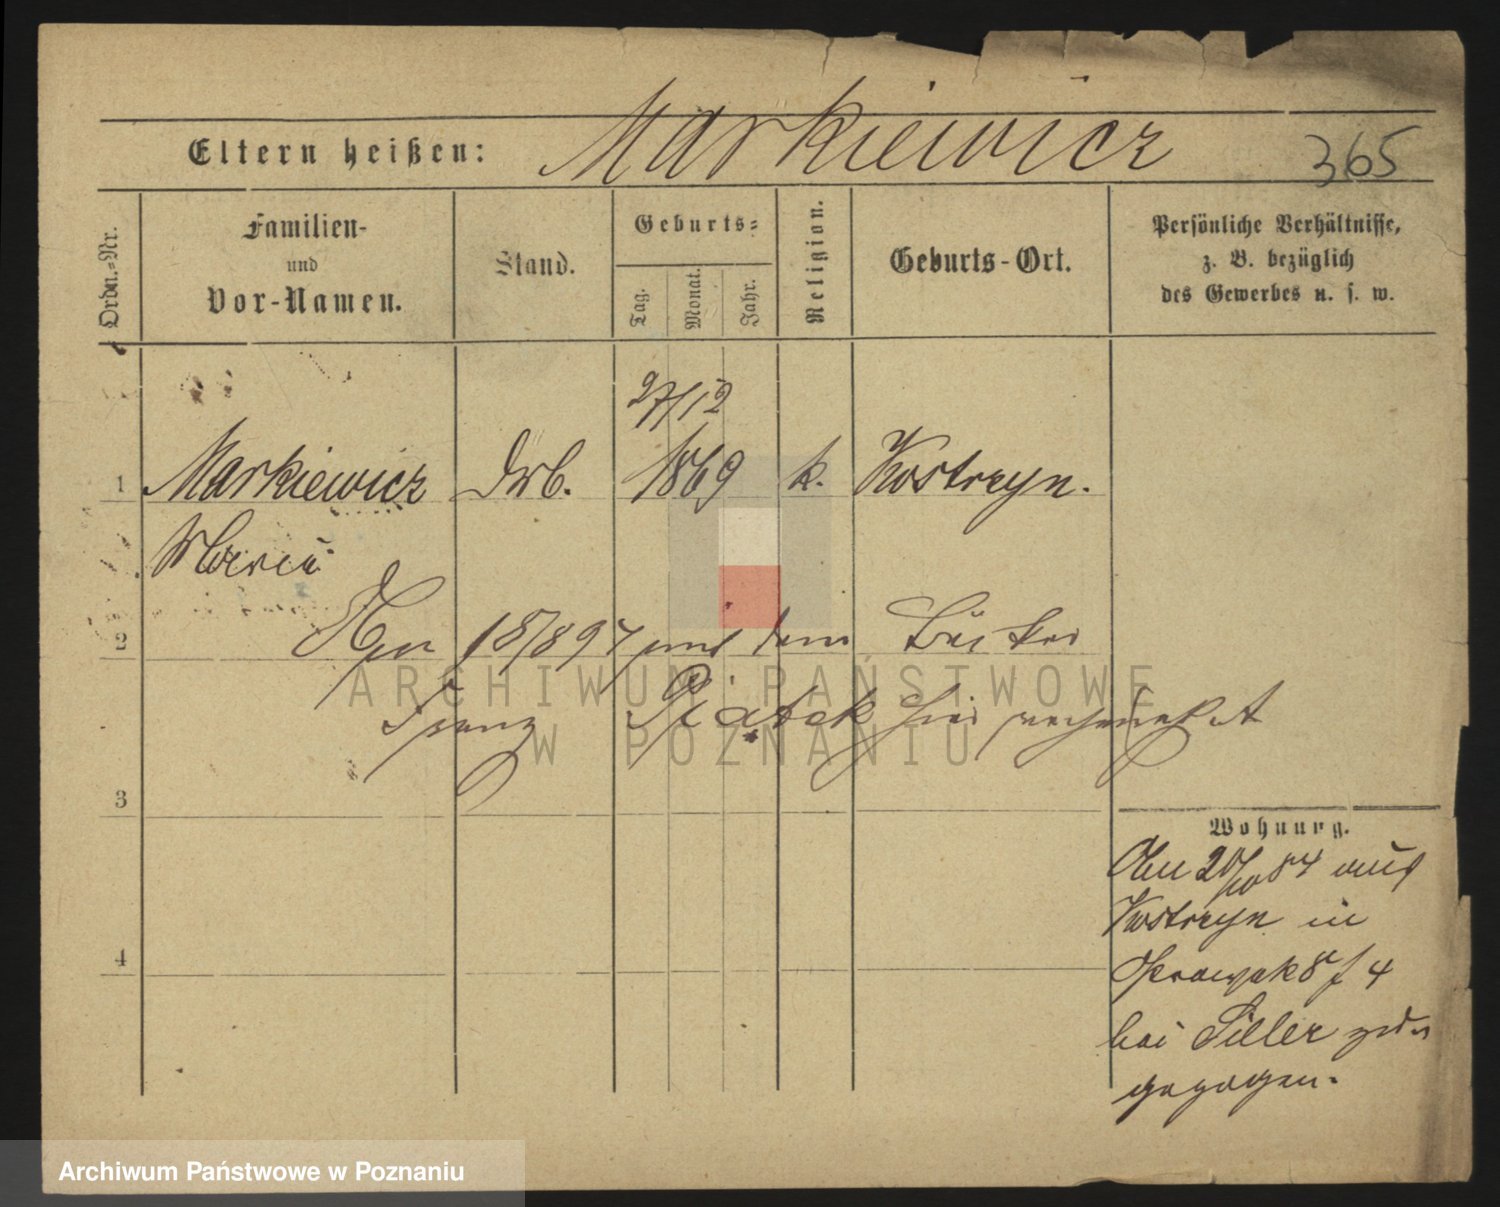 Eltern heißen: Markiewicz 365
Ordn.-Nr.
Familien-
und
Vor-Namen.
Stand.
Geburts-
Tag.
Monat.
Jahr.
Religion.
Geburts-Ort.
Persönliche Verhältnisse,
z. B. bezüglich
des Gewerbes u. s. w.
27/12
1 Markiewicz 1869 k. Kostrzyn.
Maria
2 18/897 mit dem Bäcker
Franz Piątek hier verheirat
ARCHIWUM PAŃSTWOWE
W POZNANIU
3
Wohnung.
20/10 84 aus
Kostrzyn in
4
bei Siller
gezogen.
Archiwum Państwowe w Poznaniu